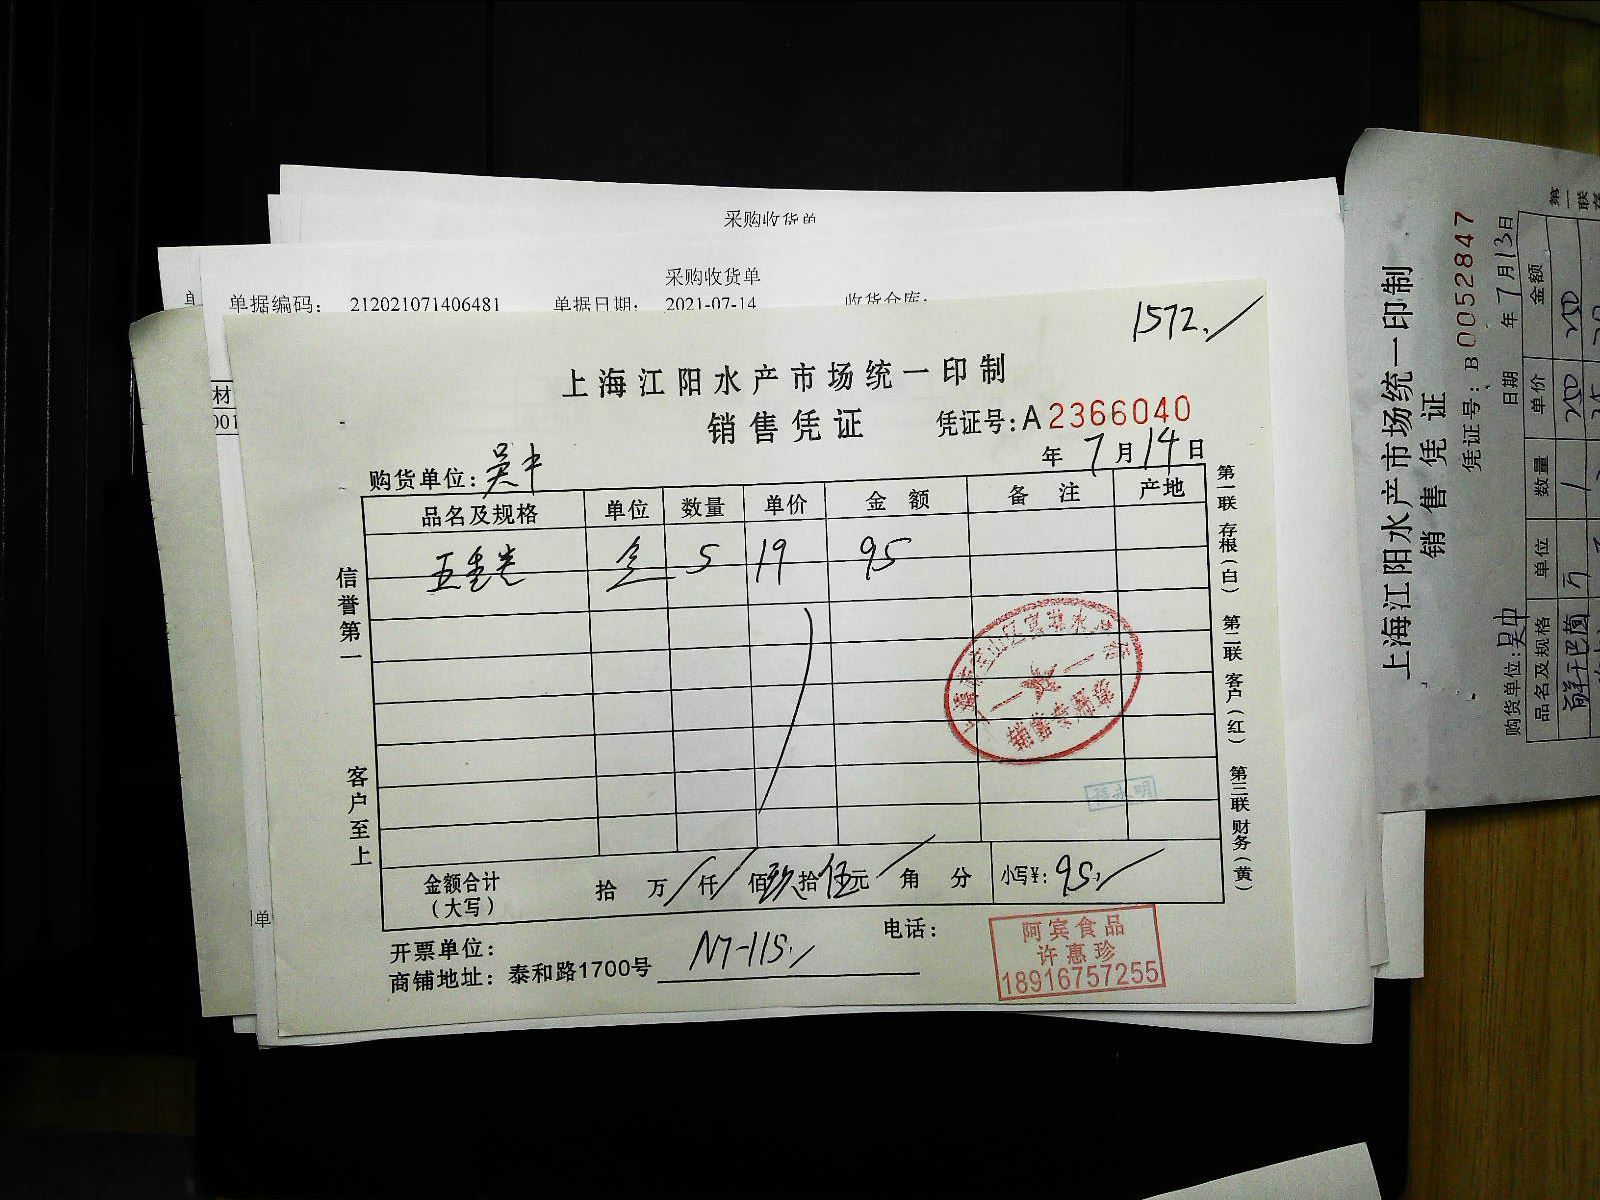 采购收货单
采购收货单
单据编码： 212021071406481 单据日期： 2021-07-14 收货仓库：
材
001
单
1572.
上海江阳水产市场统一印制
销售凭证 凭证号:A2366040
购货单位:吴中 年7月14日
品名及规格 单位 数量 单价 金额 备注 产地
5 19 95
信誉第一
客户至上
第一联 存根(白) 第二联 客户(红) 第三联 财务(黄)
销售专用章
金额合计(大写) 拾 万 仟 佰玖拾伍元 角 分 小写¥:95.
开票单位: 电话:
商铺地址: 泰和路1700号 N7-115.
阿宾食品
许惠珍
18916757255
上海江阳水产市场统一印制
销售凭证
凭证号:B0052847
购货单位:吴中 日期 年7月13日
品名及规格 单位 数量 单价 金额
1 250 250